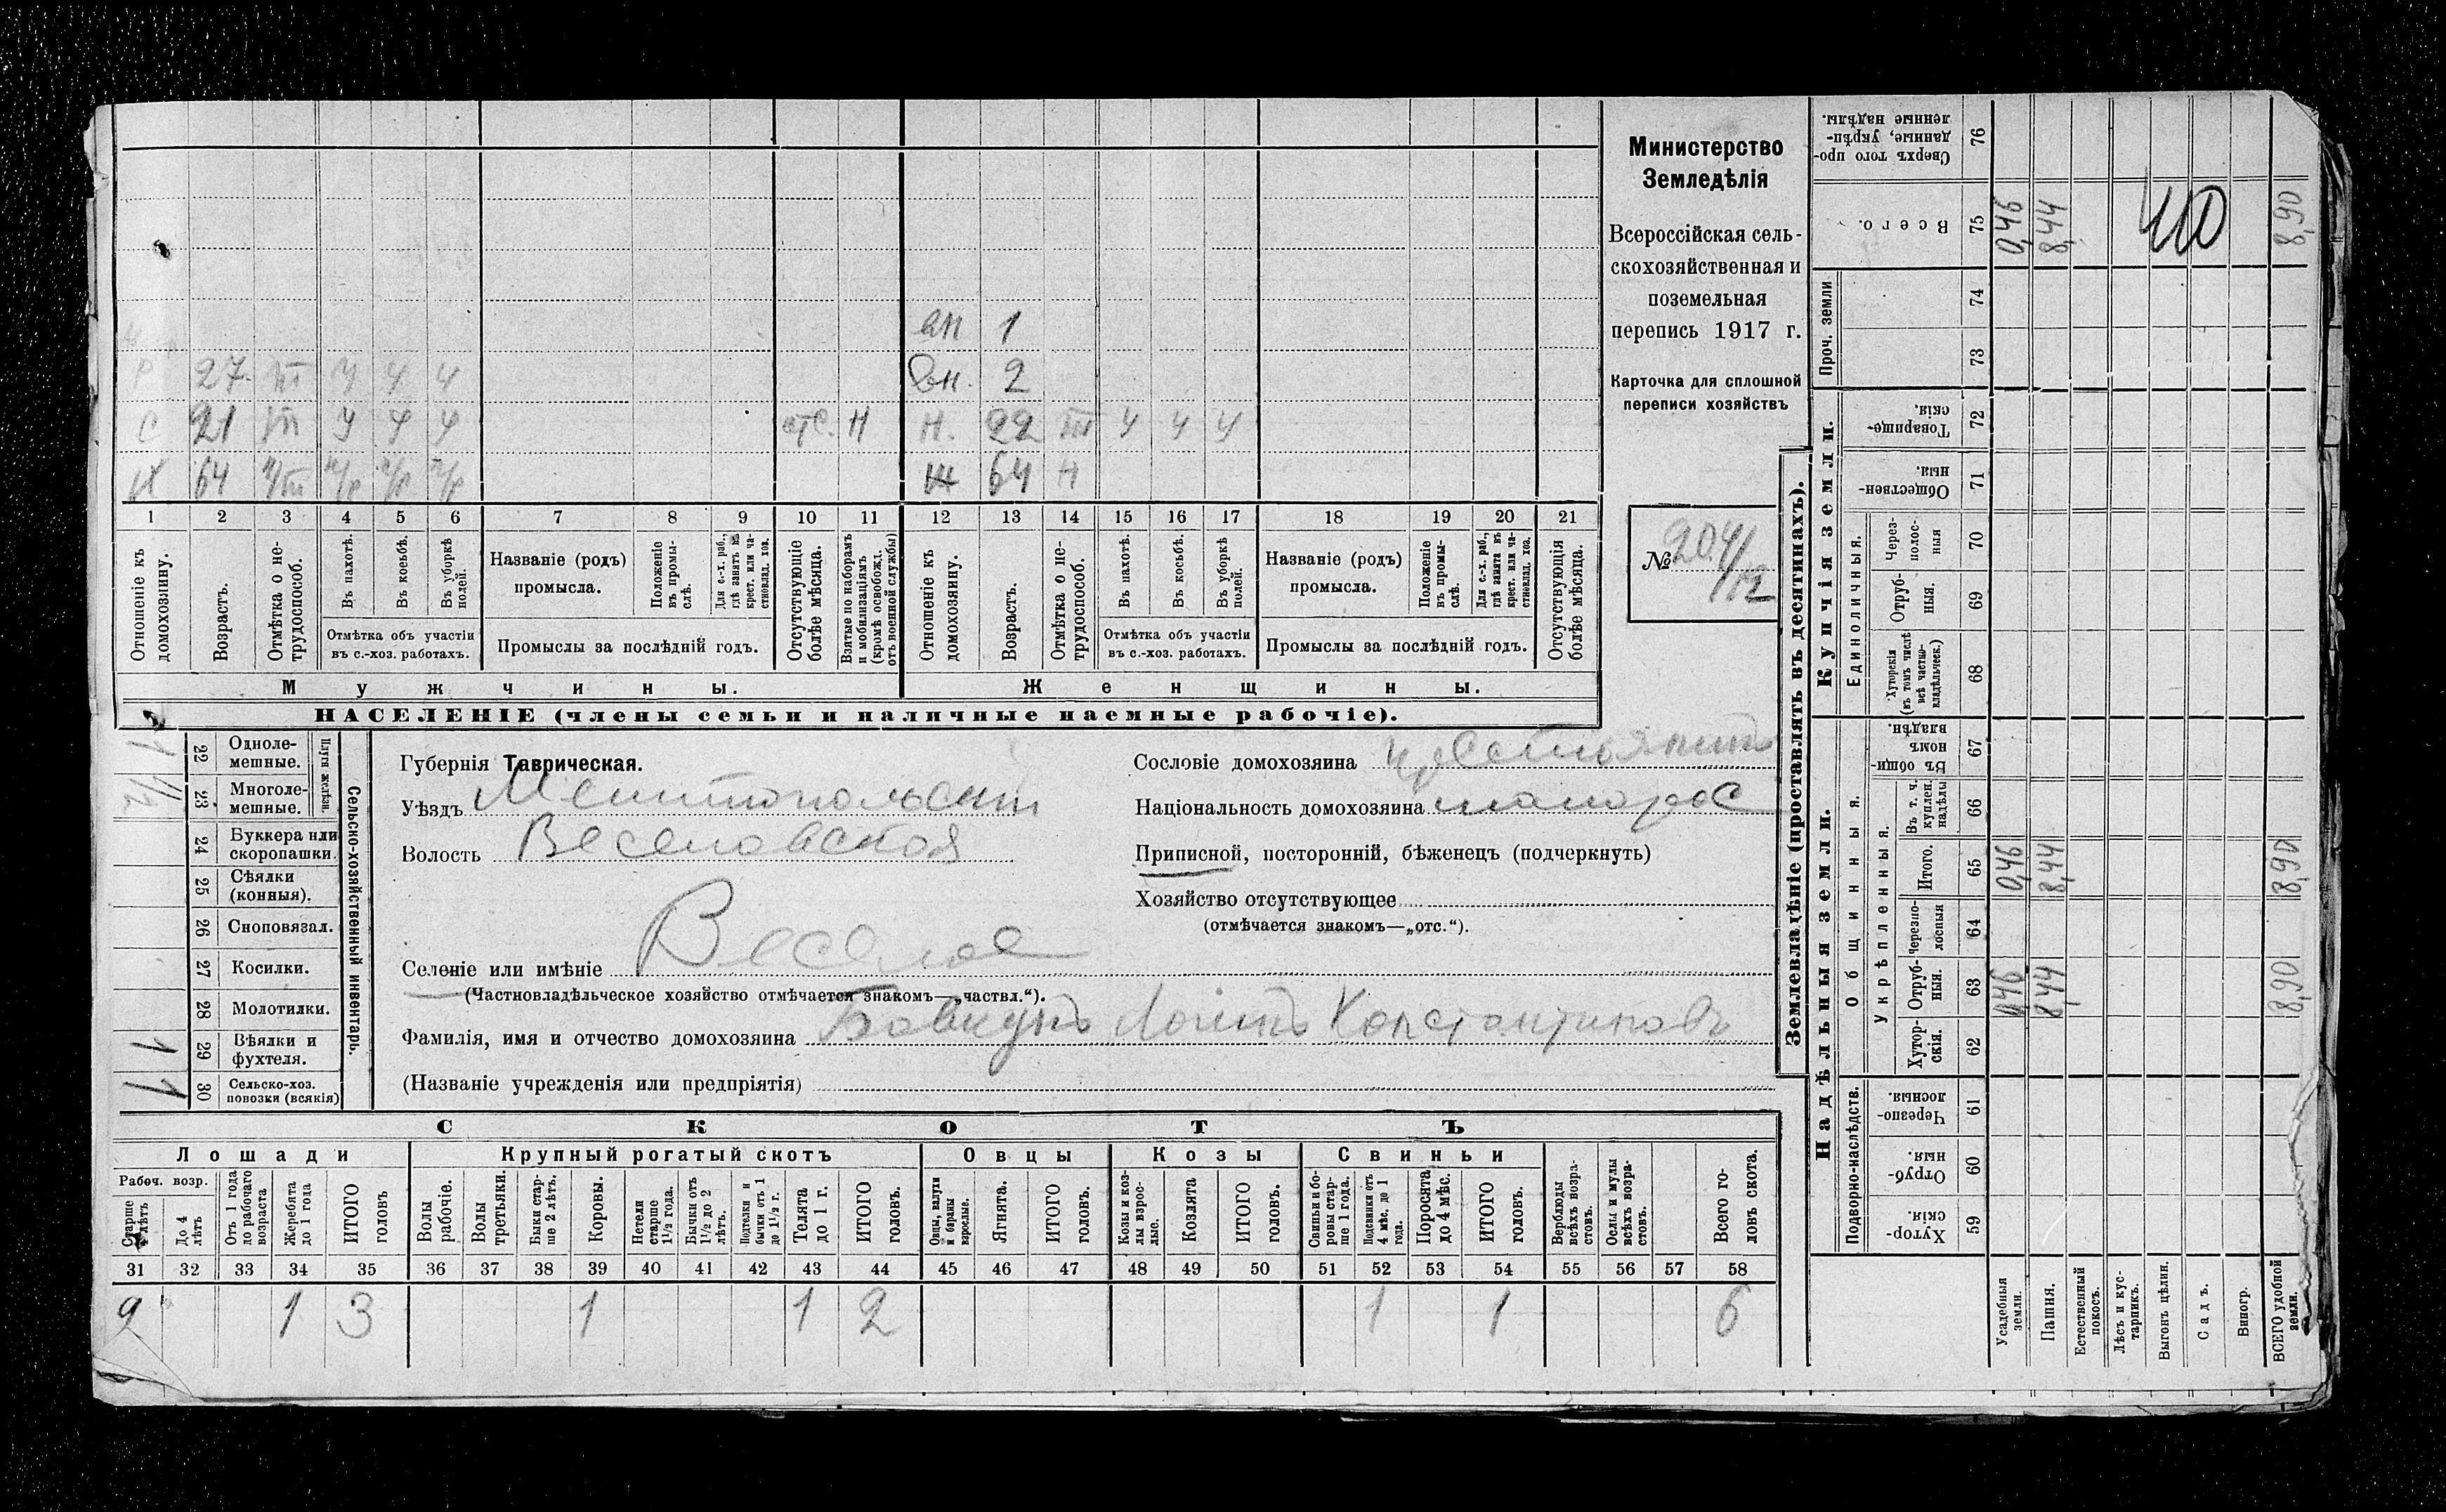 вн 1
Р 27 ПТ У У У дн. 2
С 21 ПТ У У У отс. Н Н. 22 ПТ У У У
Х 64 Ж 64 Н
1 2 3 4 5 6 7 8 9 10 11 12 13 14 15 16 17 18 19 20 21
Отношеніе къ домохозяину.
Возрастъ.
Отмѣтка о не-
трудоспособ.
Въ пахотѣ.
Въ косьбѣ.
Въ уборкѣ полей.
Отмѣтка объ участіи
въ с.-хоз. работахъ.
Названіе (родъ)
промысла.
Положеніе въ промы-
слѣ.
Для с.-х. раб., гдѣ занятъ въ крест. или ча-
стновлад. хоз.
Промыслы за послѣдній годъ.
Отсутствующіе болѣе мѣсяца.
Взятые по наборамъ и мобилизаціямъ (кромѣ освобожд. отъ военной службы)
Отношеніе къ домохозяину.
Возрастъ.
Отмѣтка о не-
трудоспособ.
Въ пахотѣ.
Въ косьбѣ.
Въ уборкѣ полей.
Отмѣтка объ участіи
въ с.-хоз. работахъ.
Названіе (родъ)
промысла.
Положеніе въ промы-
слѣ.
Для с.-х. раб., гдѣ занята въ крест. или ча-
стновлад. хоз.
Промыслы за послѣдній годъ.
Отсутствующія болѣе мѣсяца.
Мужчины. Женщины.
НАСЕЛЕНІЕ (члены семьи и наличные наемные рабочіе).
Министерство
Земледѣлія
Всероссійская сель-
скохозяйственная и
поземельная
перепись 1917 г.
Карточка для сплошной
переписи хозяйствъ
№ 204/112
Сельско-хозяйственный инвентарь.
22 Одноле-
мешные.
23 Многоле-
мешные.
24 Буккера или
скоропашки.
25 Сѣялки
(конныя).
26 Сноповязал.
27 Косилки.
28 Молотилки.
29 Вѣялки и
фухтеля. 1
30 Сельско-хоз.
повозки (всякія) 1
Губернія Таврическая.
Уѣздъ Мелитопольскій
Волость Веселовская
Селеніе или имѣніе Веселое
(Частновладѣльческое хозяйство отмѣчается знакомъ—„частвл.“).
Фамилія, имя и отчество домохозяина Бовкунъ Логинъ Константиновъ
(Названіе учрежденія или предпріятія)
Сословіе домохозяина крестьянинъ
Національность домохозяина малорос
Приписной, посторонній, бѣженецъ (подчеркнуть)
Хозяйство отсутствующее
(отмѣчается знакомъ—„отс.“).
СКОТЪ
Лошади Крупный рогатый скотъ Овцы Козы Свиньи
Рабоч. возр.
Старше 4 лѣтъ
До 4 лѣтъ
Отъ 1 года до рабочаго возраста
Жеребята до 1 года
ИТОГО головъ
Волы рабочіе.
Волы третьяки.
Быки стар-
ше 2 лѣтъ.
Коровы.
Нетели старше 1½ года.
Бычки отъ 1½ до 2 лѣтъ.
Подтелки и бычки отъ 1 до 1½ г.
Телята до 1 г.
ИТОГО головъ.
Овцы, валухи и бараны взрослые.
Ягнята.
ИТОГО головъ.
Козы и коз-
лы взрос-
лые.
Козлята
ИТОГО головъ.
Свиньи и бо-
ровы стар-
ше 1 года.
Подсвинки отъ 4 мѣс. до 1 года.
Поросята до 4 мѣс.
ИТОГО головъ.
Верблюды всѣхъ возра-
стовъ.
Ослы и мулы всѣхъ возра-
стовъ.
Всего го-
ловъ скота.
31 32 33 34 35 36 37 38 39 40 41 42 43 44 45 46 47 48 49 50 51 52 53 54 55 56 57 58
2 1 3 1 1 2 1 1 6
Землевладѣніе (проставлять въ десятинахъ).
Надѣльныя земли.
Купчія земли.
Проч. земли
Подворно-наслѣдств.
Общинныя.
Укрѣпленныя.
Единоличныя.
Сверхъ того про-
данные, укрѣп-
ленные надѣлы. 76
Всего. 75 0,46 8,44 40 8,90
74
73
Товарище-
скія. 72
Обществен-
ныя. 71
Через-
полос-
ныя 70
Отруб-
ныя. 69
Хуторскія (въ томъ числѣ всѣ частно-
владѣльческ.) 68
Въ общин-
номъ владѣн. 67
Въ т. ч. куплен. надѣлы 66
Итого. 65 0,46 8,44 8,90
Черезпо-
лосныя 64
Отруб-
ныя. 63 0,46 8,44 8,90
Хутор-
скія. 62
Черезпо-
лосныя. 61
Отруб-
ныя. 60
Хутор-
скія. 59
Усадебныя земли.
Пашня.
Естественный покосъ.
Лѣсъ и кус-
тарникъ.
Выгонъ цѣлин.
Садъ.
Виногр.
ВСЕГО удобной земли.